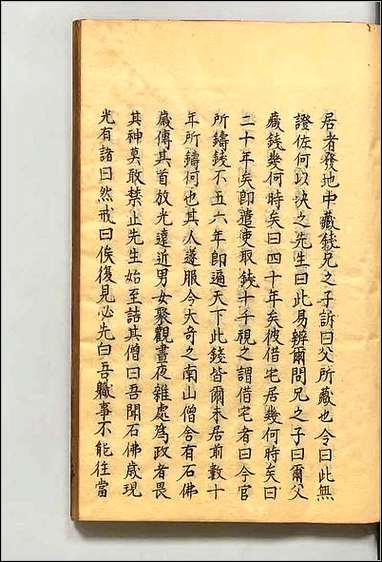 居者發地中藏錢兄之子訴曰父所藏也令曰此無
證佐何以決之先生曰此易辨爾問兄之子曰爾父
藏錢幾何時矣曰四十年矣彼借宅居幾何時矣曰
二十年矣即遣吏取錢十千視之謂借宅者曰今官
所鑄錢不五六年即遍天下此錢皆爾未居前數十
年所鑄何也其人遂服令大奇之南山僧舍有石佛
歲傳其首放光遠近男女聚觀晝夜雜處為政者畏
其神莫敢禁止先生始至詰其僧曰吾聞石佛歲現
光有諸曰然戒曰俟復見必先白吾職事不能往當